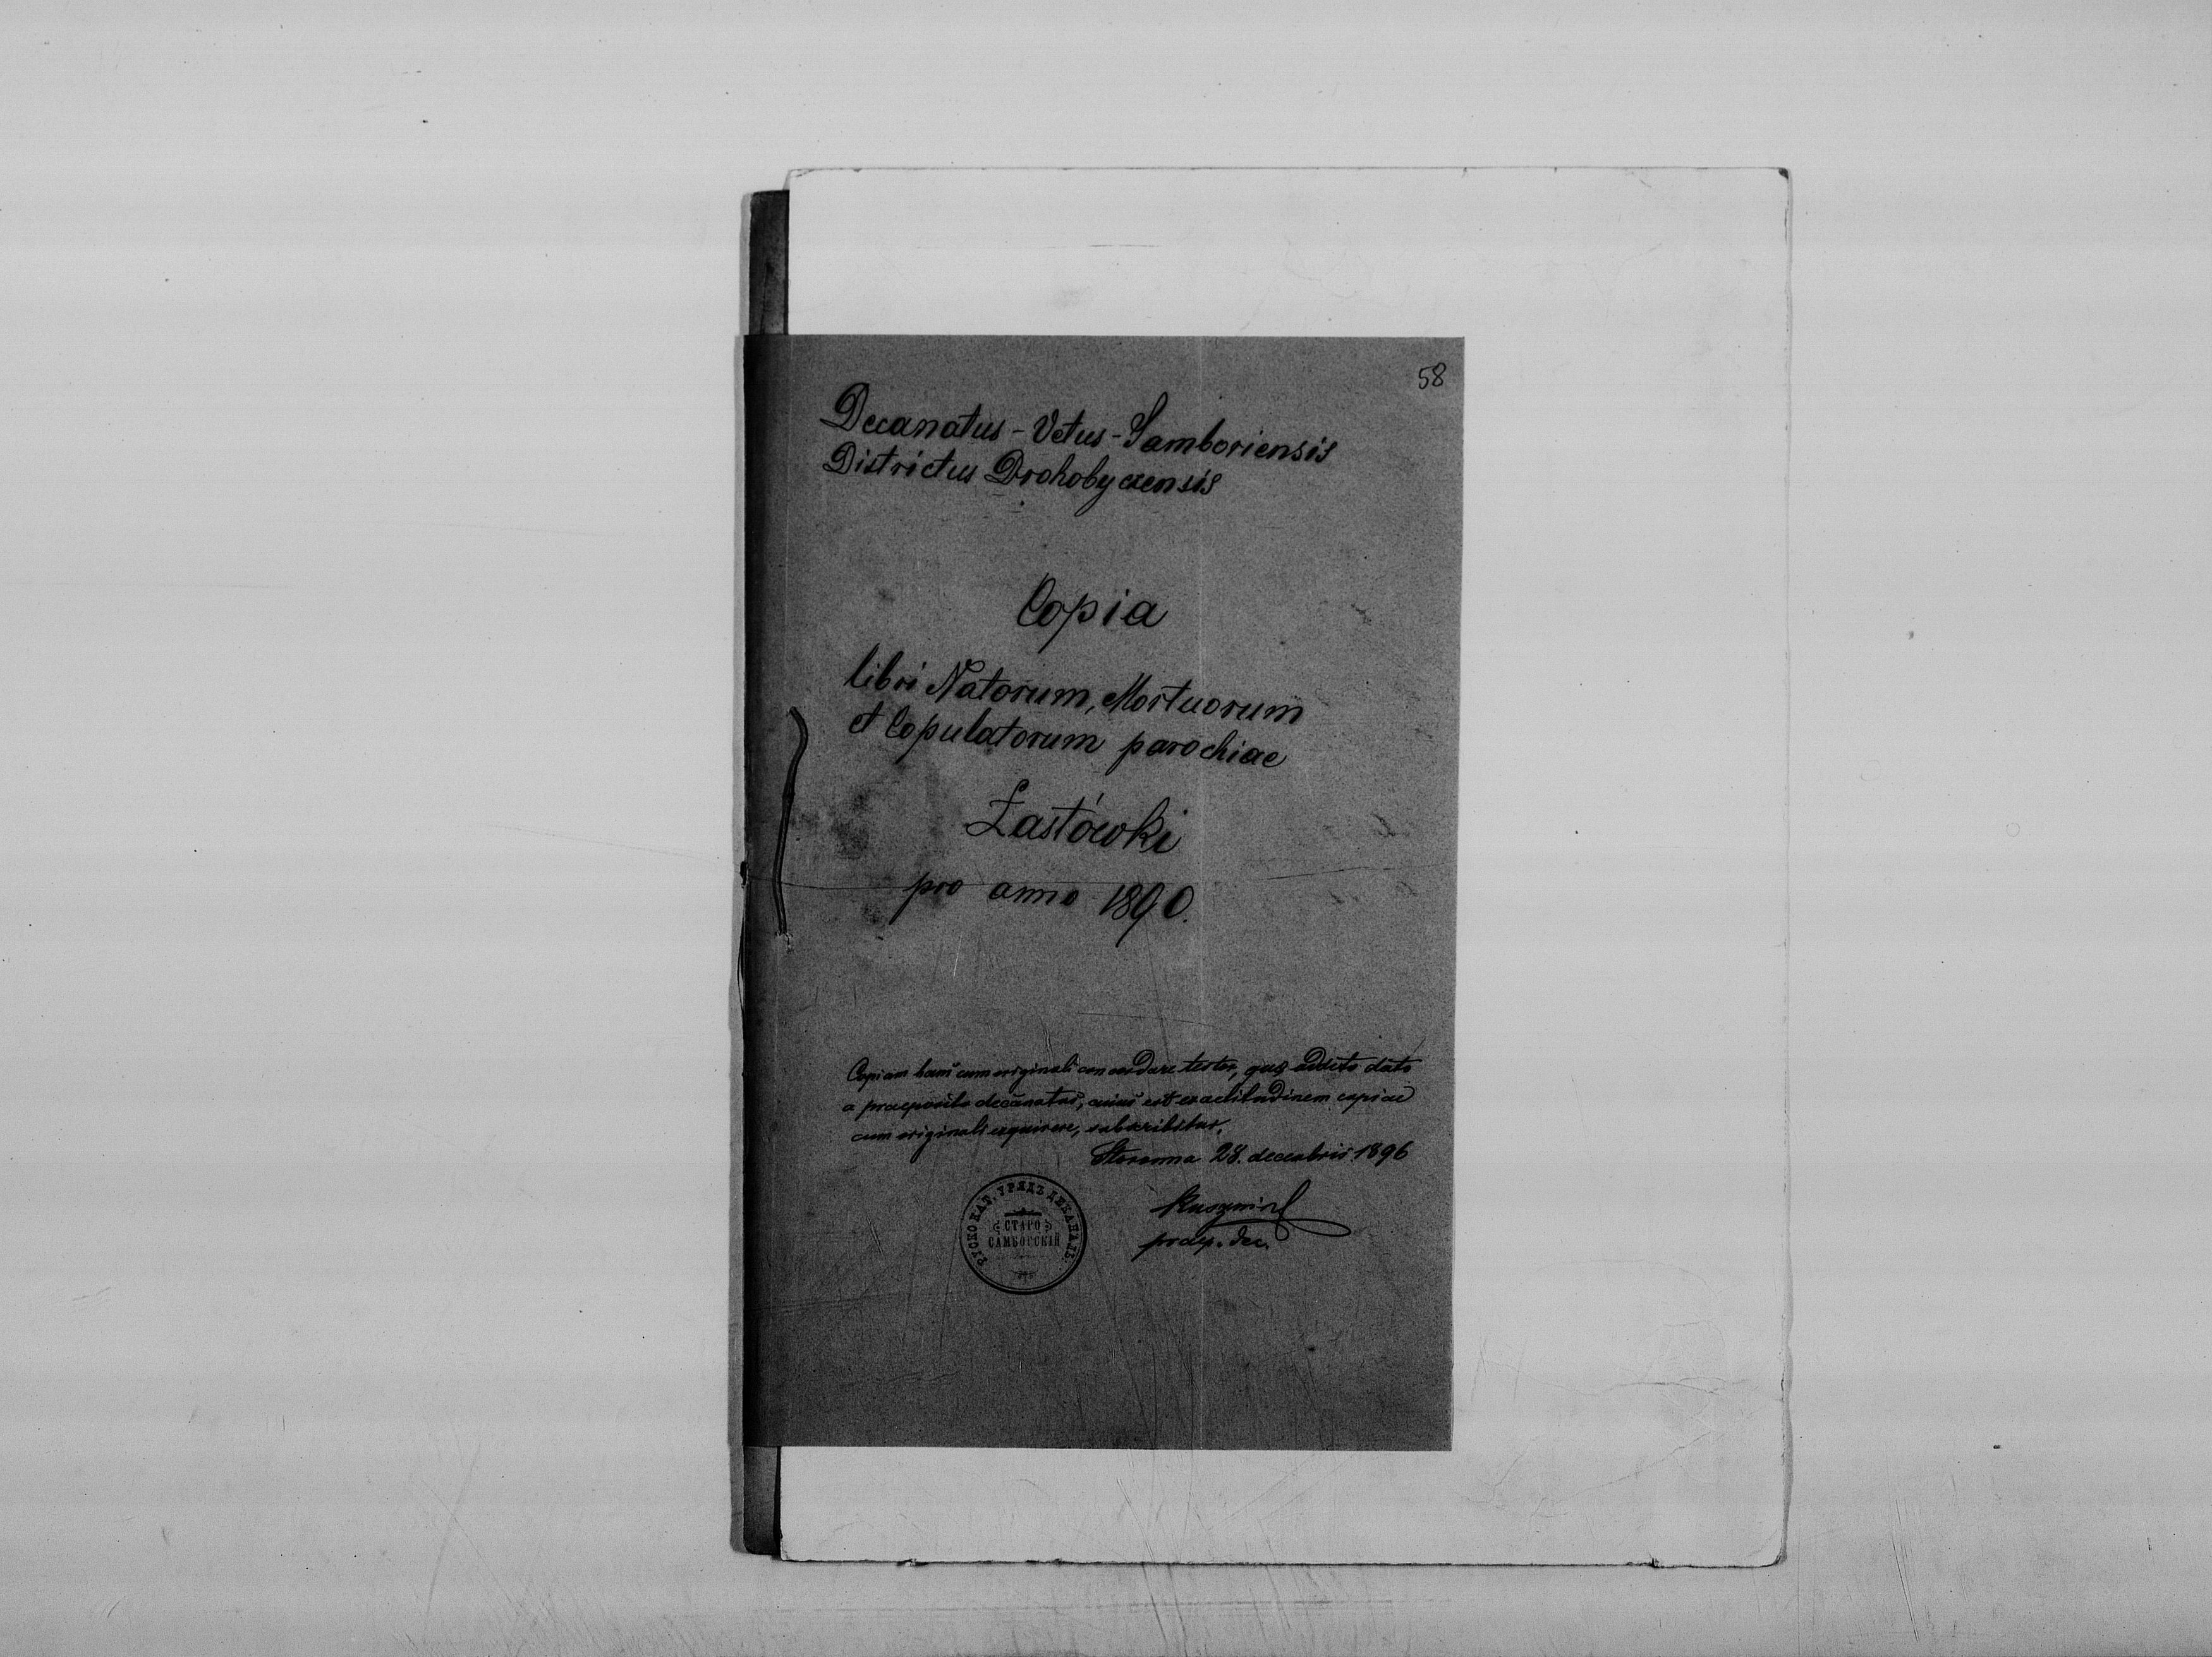 58
Decanatus - Vetus - Samboriensis
Districtus Drohobyczensis
Copia
libri Natorum, Mortuorum
et Copulatorum parochiae
Łastówki
pro anno 1890.
Copiam hanc cum originali concordare testor, addito dato
a praeposito decanatus, cuius est exactitudinem copiae
cum originali exquirere, subscribitur.
28. decembris 1896
praep. dec.
РУСКО КАТ. УРЯДЪ ДЕКАНАЛЬ.
СТАРО
САМБОРСКІЙ